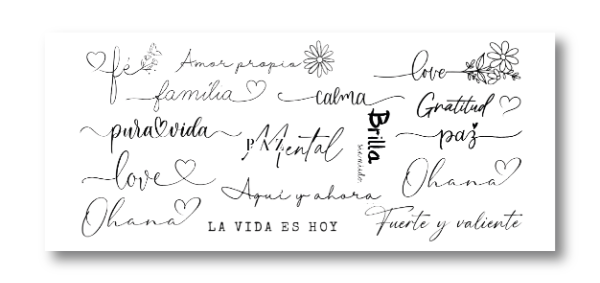 fé
Amor propio
love
familia
calma
Gratitud
pura vida
PAZ Mental
Brilla
paz
love
Ohana
Aquí y ahora
Ohana
LA VIDA ES HOY
Fuerte y valiente